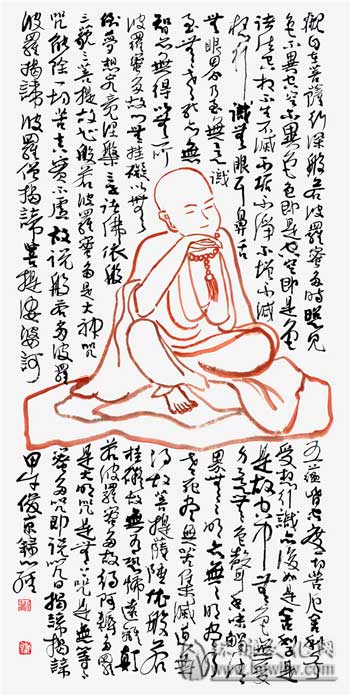 觀自在菩薩行深般若波羅蜜多時照見
五蘊皆空度一切苦厄舍利子
色不異空空不異色色即是空空即是色
受想行識亦復如是舍利子是
諸法空相不生不滅不垢不淨不增不減
是故空中無色無受
想行識無眼耳鼻舌
身意無色聲香味觸法
無眼界乃至無意識
界無無明亦無無明盡
乃至無老死亦無
老死盡無苦集滅道無
智亦無得以無所
得故菩提薩埵依般若
波羅蜜多故心無罣礙
罣礙故無有恐怖遠離顛
倒夢想究竟涅槃三世諸佛依般
若波羅蜜多故得阿耨多羅
三藐三菩提故知般若波羅蜜多是大神咒
是大明咒是無上咒是無等等
咒能除一切苦真實不虛故說般若波羅
蜜多咒即說咒曰揭諦揭諦
波羅揭諦波羅僧揭諦菩提娑婆訶
甲午俊京錄心經